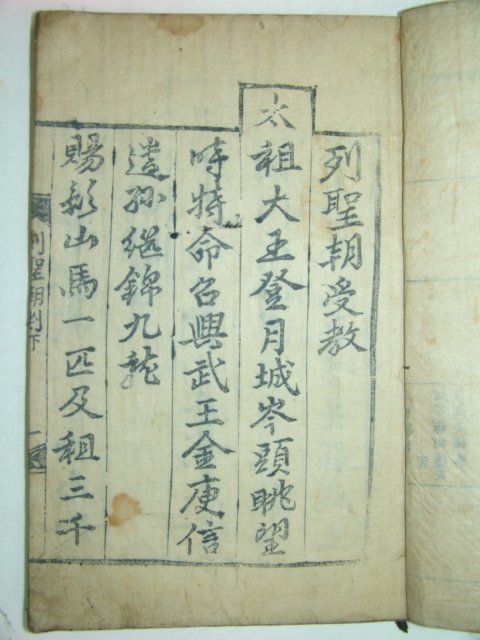 列聖朝受教
太祖大王登月城岑頭眺望
時特命召興武王金庾信
遺孫繼錦九龍
賜彩山馬一匹及租三千
列聖朝判下
一